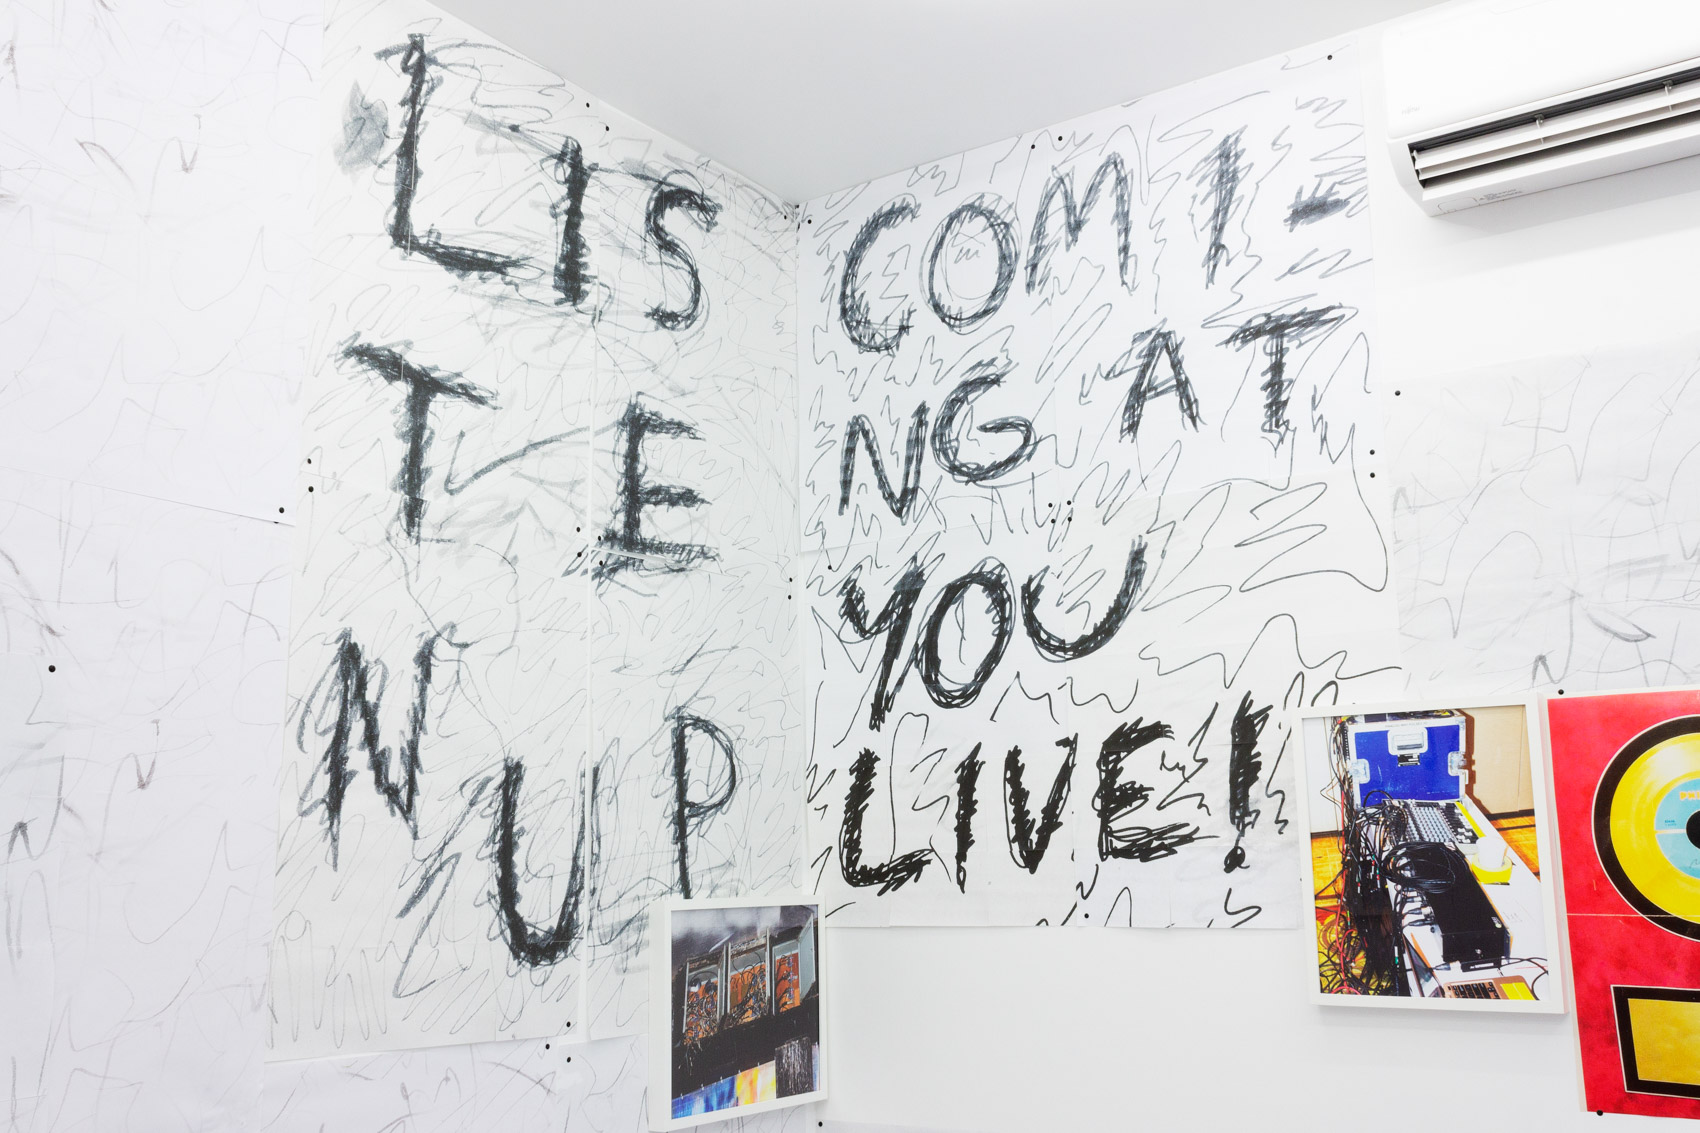 LIS
TE
N UP
COMI-
NG AT
YOU
LIVE!